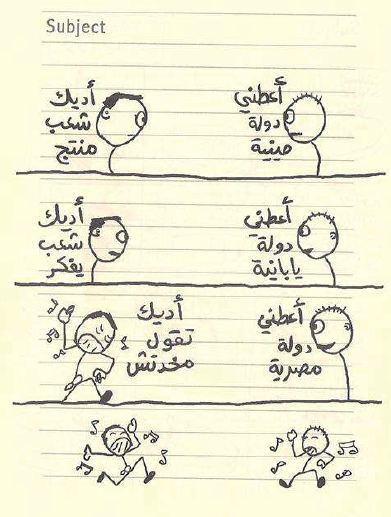 Subject
أعطني
دولة
صينية
أديك
شعب
منتج
أعطني
دولة
يابانية
أديك
شعب
يفكر
أعطني
دولة
مصرية
أديك
تقول
مخدتش